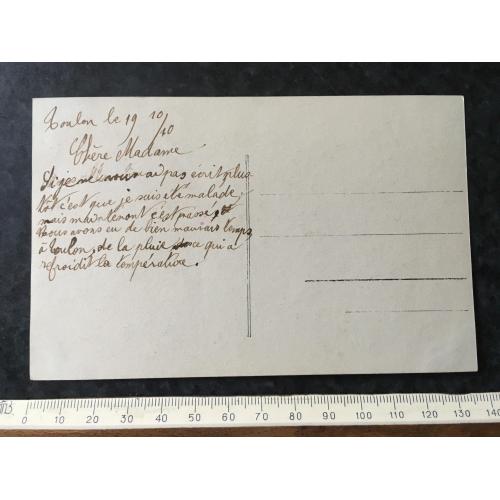 Toulon le 19 10/10
Chère Madame
Si je ne ai pas écrit plus
tôt c'est que je suis été malade,
mais maintenant c'est passé,
Nous avons eu de bien mauvais temps
à Toulon, de la pluie ce qui a
refroidit la température.
0 10 20 30 40 50 60 70 80 90 100 110 120 130 140